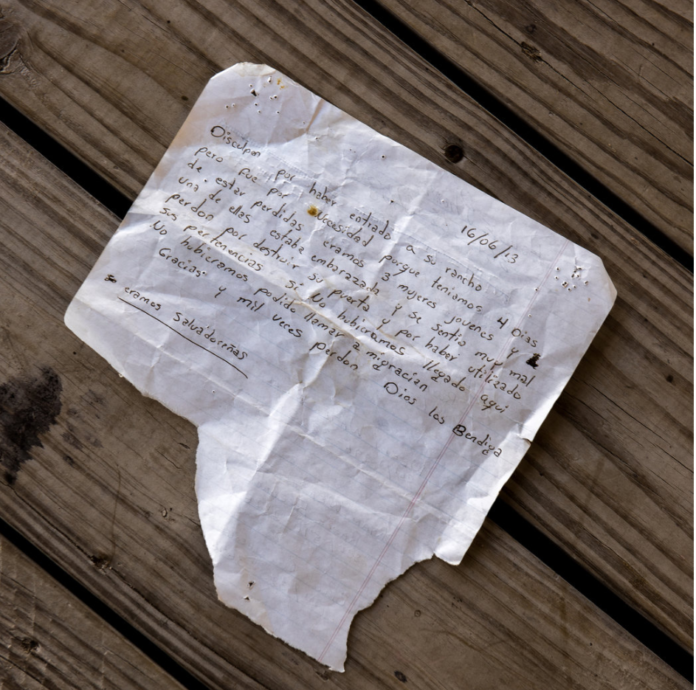 16/06/13
Disculpen por haber entrado a su rancho
pero fue por necesidad porque teniamos 4 Dias
de estar perdidas eramos 3 mujeres jovenes y
una de ellas estaba embarazada y se sentia muy mal
perdon por destruir su puerta y por haber utilizado
sus pertenencias. Si no hubieramos llegado aqui
No hubieramos podido llamar a migracion
Gracias y mil veces perdon Dios los Bendiga
eramos Salvadoreñas